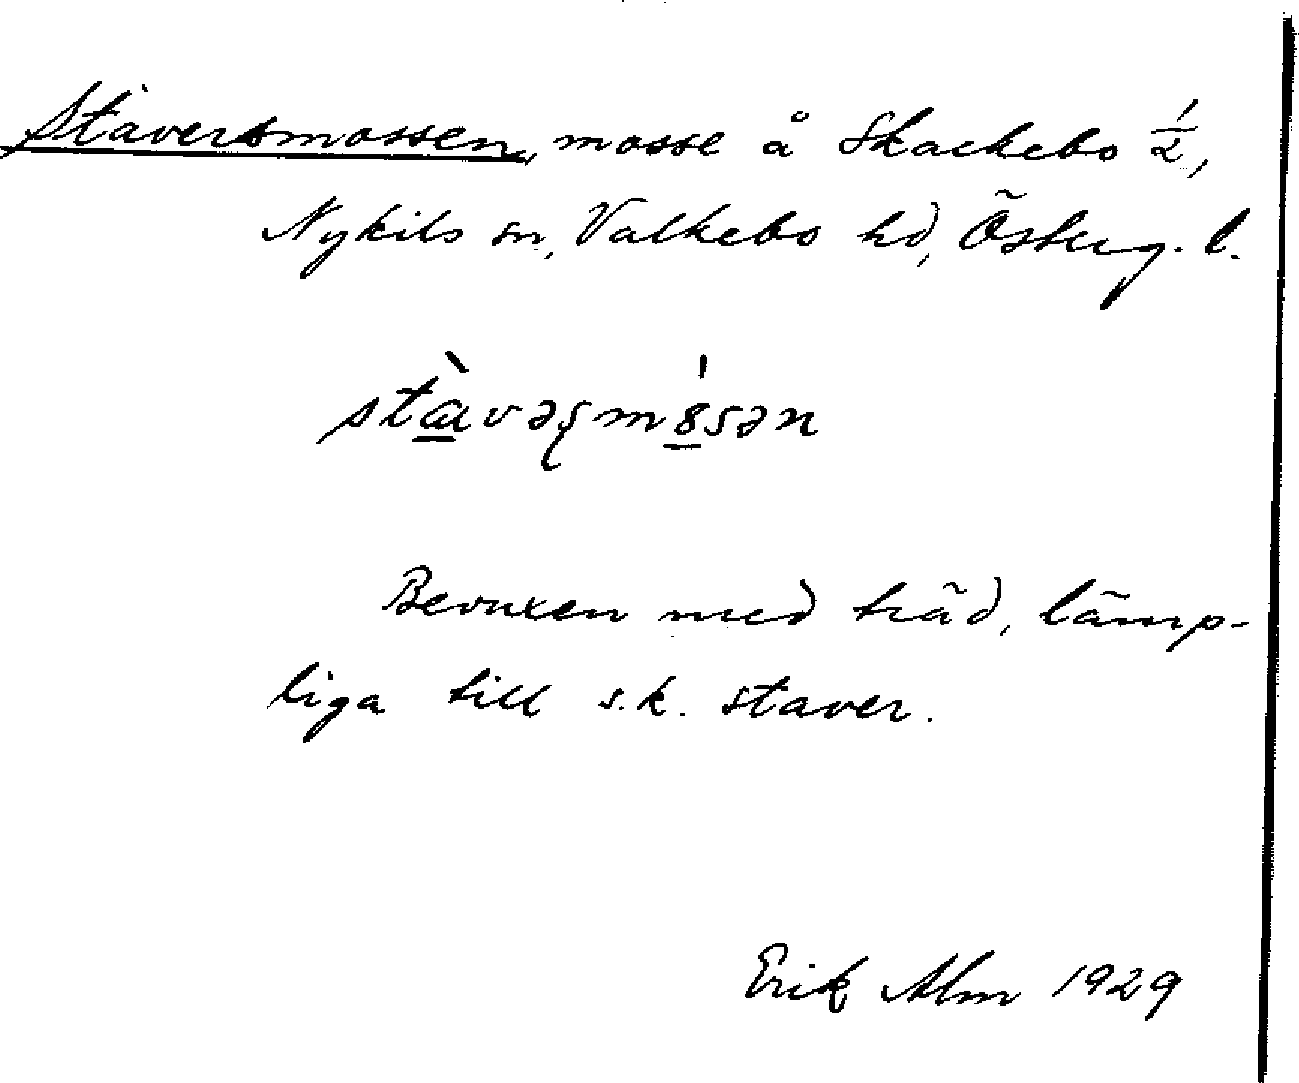 Staversmossen, mosse å Skackebo 1/2,
Nykils sn, Valkebo hd, Österg. l.
stɑ̀vəʂmösən
Bevuxen med träd, lämp-
liga till s.k. staver.
Erik Alm 1929